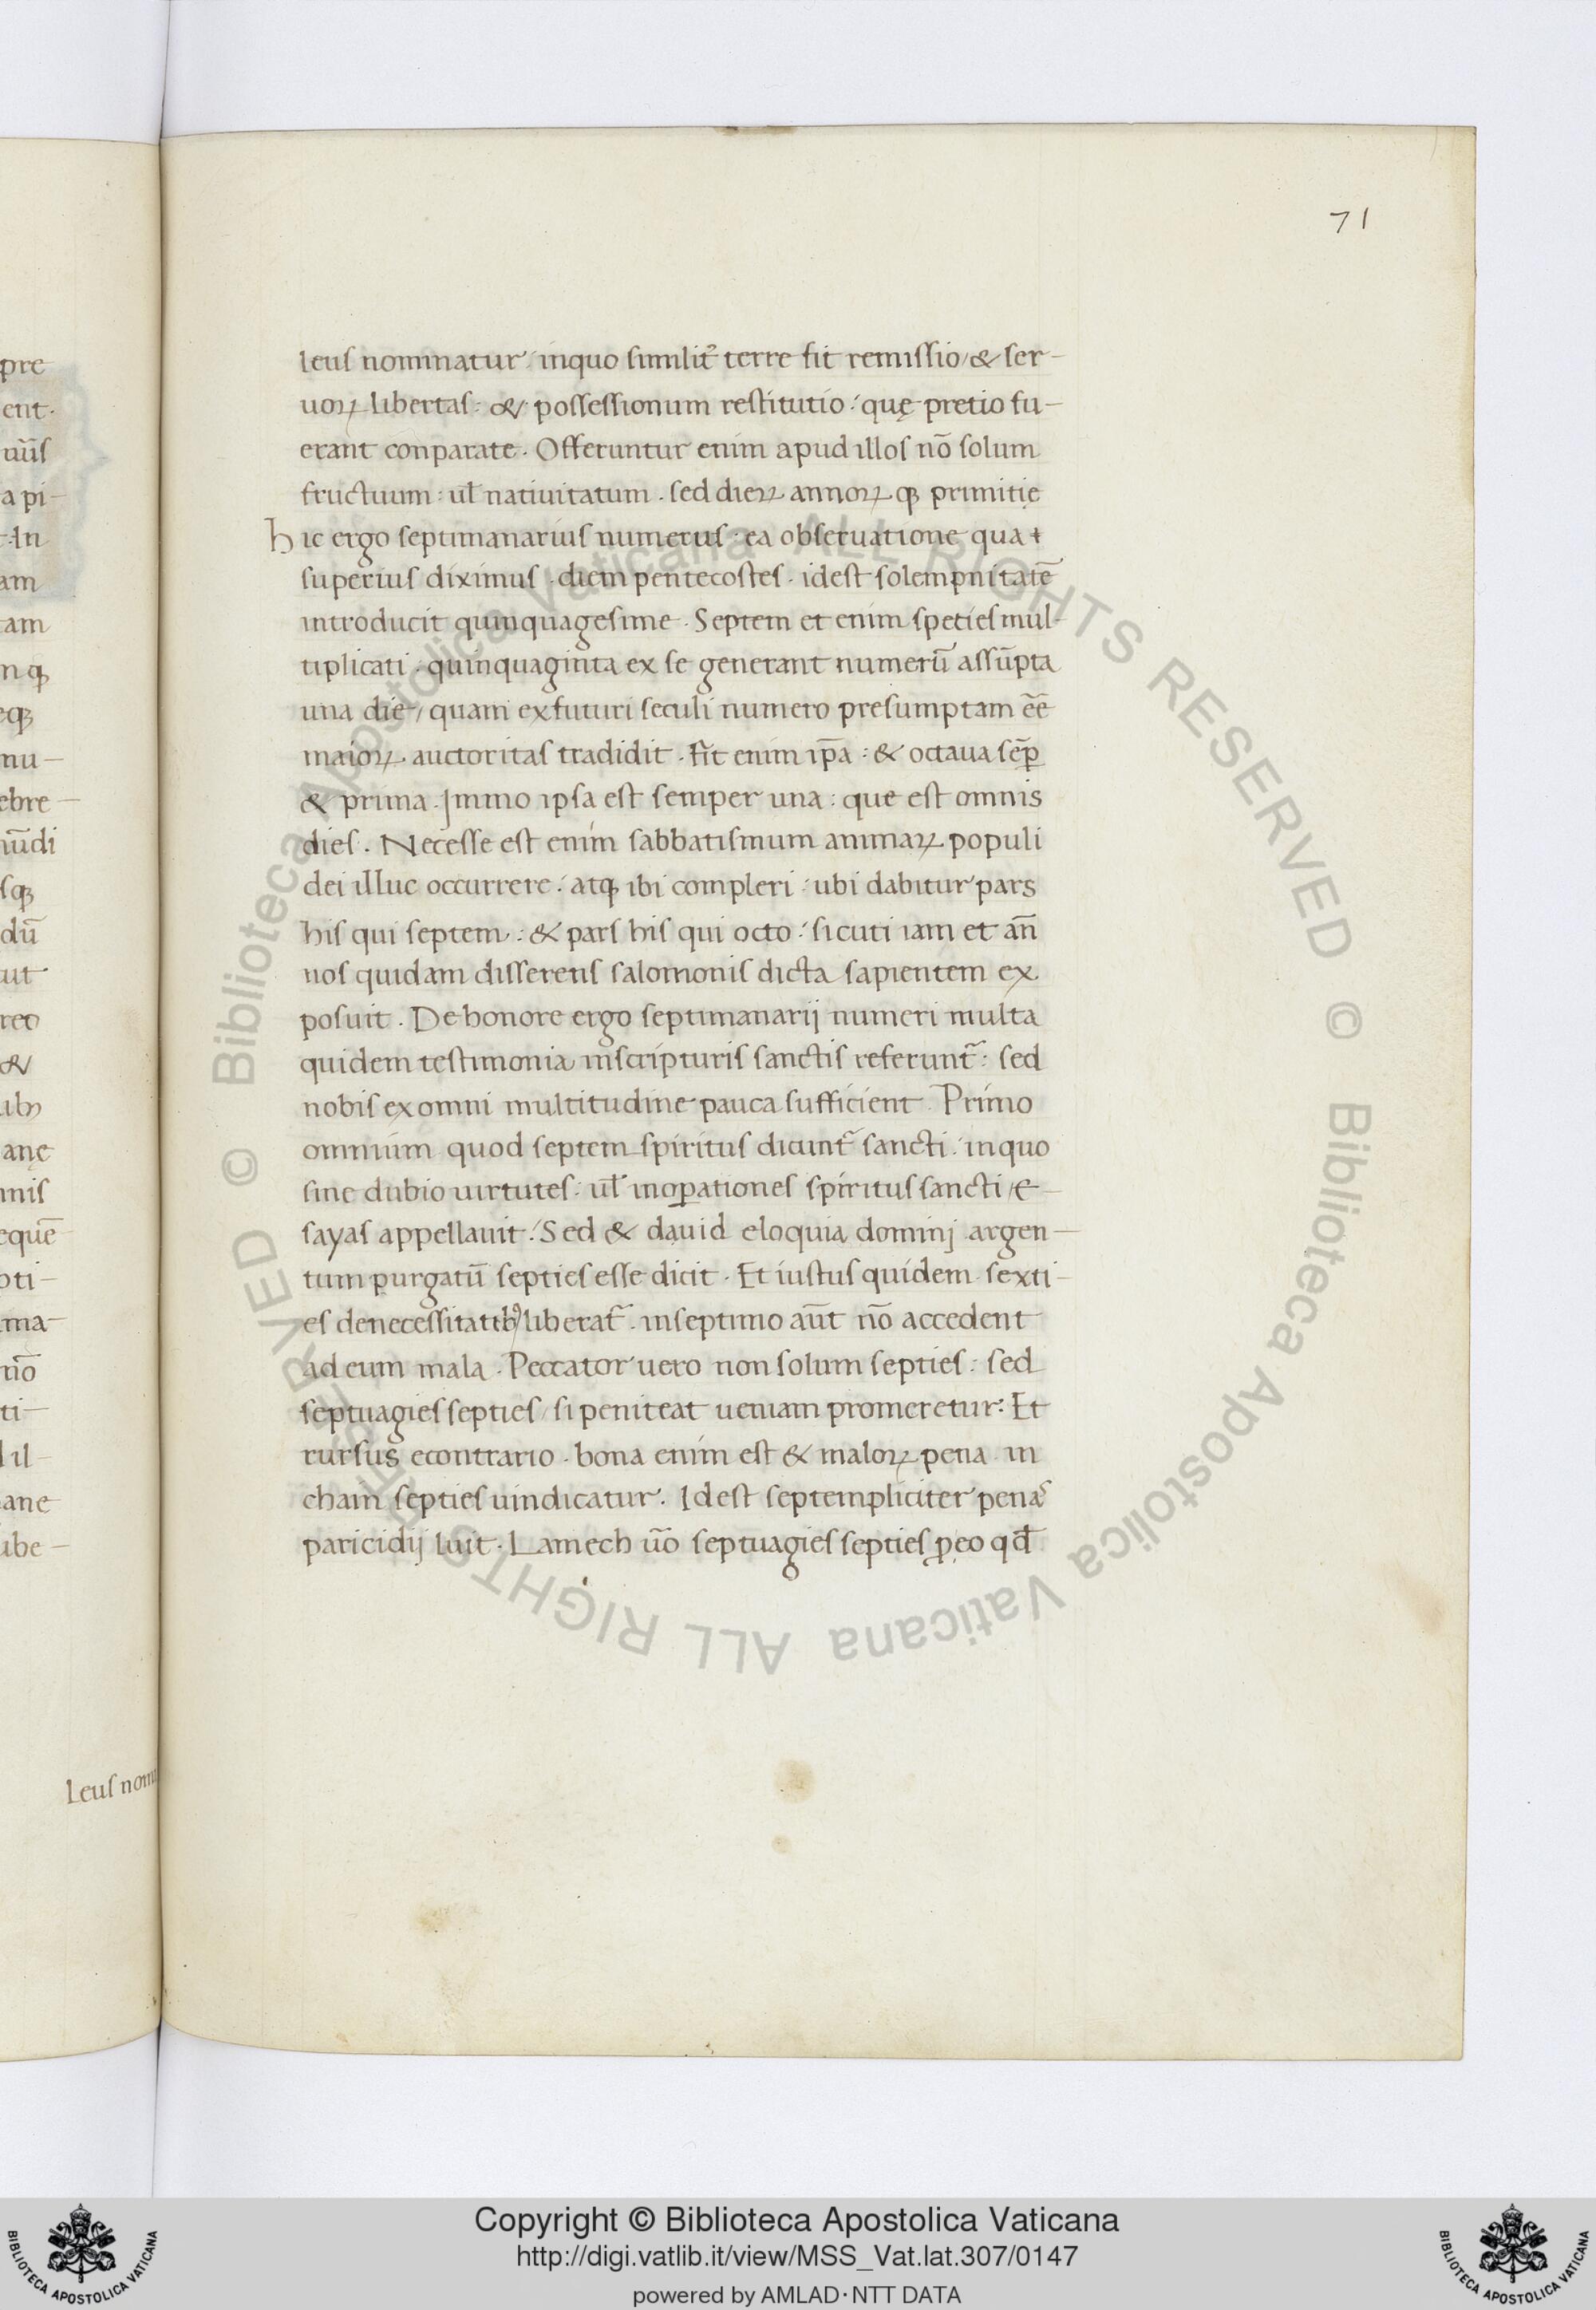 71
pre
ent.
uũſ
a pi-
:In
am
tam
nq;
eq;
nu-
ebre-
nũdi
ſq;
dũ
ut
reo
&
ane
nnis
equẽ
oti-
ma-
nõ
ti-
il-
ane
ube-
leuſ nom
leuſ nominatur / inquo ſimilit̃ terre fit remiſſio / & ſer-
uoꝝ libertaſ : & poſſeſſionum reſtitutio : quę pretio fu-
erant conparate . Offeruntur enim apud illoſ nõ ſolum
fructuum : ul̃ natiuitatum . ſed dieꝝ annoꝝ q; primitię
hic ergo ſeptimanariuſ numeruſ . ea obſeruatione qua +
ſuperiuſ diximuſ . diem pentecoſteſ . idest ſolempnitatẽ
introducit quinquageſime . Septem et enim ſpetieſ mul-
tiplicati . quinquaginta ex ſe generant numerũ aſſũpta
una die / quam exfuturi ſeculi numero preſumptam eẽ
maioꝝ auctoritaſ tradidit . fit enim ip̃a : & octaua ſeꝑ
& prima . Immo ipſa est ſemper una : que est omnis
dieſ . Neceſſe est enim ſabbatiſmum animaꝝ populi
dei illuc occurrere : atq; ibi compleri : ubi dabitur pars
hiſ qui ſeptem : & parſ hiſ qui octo : ſicuti iam et añ
noſ quidam diſſerenſ ſalomoniſ dicta ſapientem ex
poſuit . De honore ergo ſeptimanarij numeri multa
quidem teſtimonia inſcripturiſ ſanctiſ referunt̃ : ſed
nobiſ exomni multitudine pauca ſufficient . Primo
omnium quod ſeptem ſpirituſ dicunt̃ ſancti : inquo
ſine dubio uirtuteſ : ul̃ inoꝑationeſ ſpirituſ ſancti / e-
ſayaſ appellauit : Sed & dauid eloquia dominj argen-
tum purgatũ ſeptieſ eſſe dicit . Et iuſtuſ quidem ſexti-
eſ deneceſſitatib; liberat̃ . inſeptimo aũt nõ accedent
ad eum mala . Peccator uero non ſolum ſeptieſ : ſed
ſeptuagieſ ſeptieſ / ſi peniteat ueniam promeretur : Et
rurſuſ econtrario . bona enim est & maloꝝ pena . in
cham ſeptieſ uindicatur . Idest ſeptempliciter penaſ
paricidij luit . Lamech uõ ſeptuagieſ ſeptieſ ꝓ eo qđ
© Biblioteca Apostolica Vaticana ALL RIGHTS RESERVED © Biblioteca Apostolica Vaticana ALL RIGHTS RESERVED
Copyright © Biblioteca Apostolica Vaticana
http://digi.vatlib.it/view/MSS_Vat.lat.307/0147
powered by AMLAD·NTT DATA
BIBLIOTECA APOSTOLICA VATICANA
BIBLIOTECA APOSTOLICA VATICANA